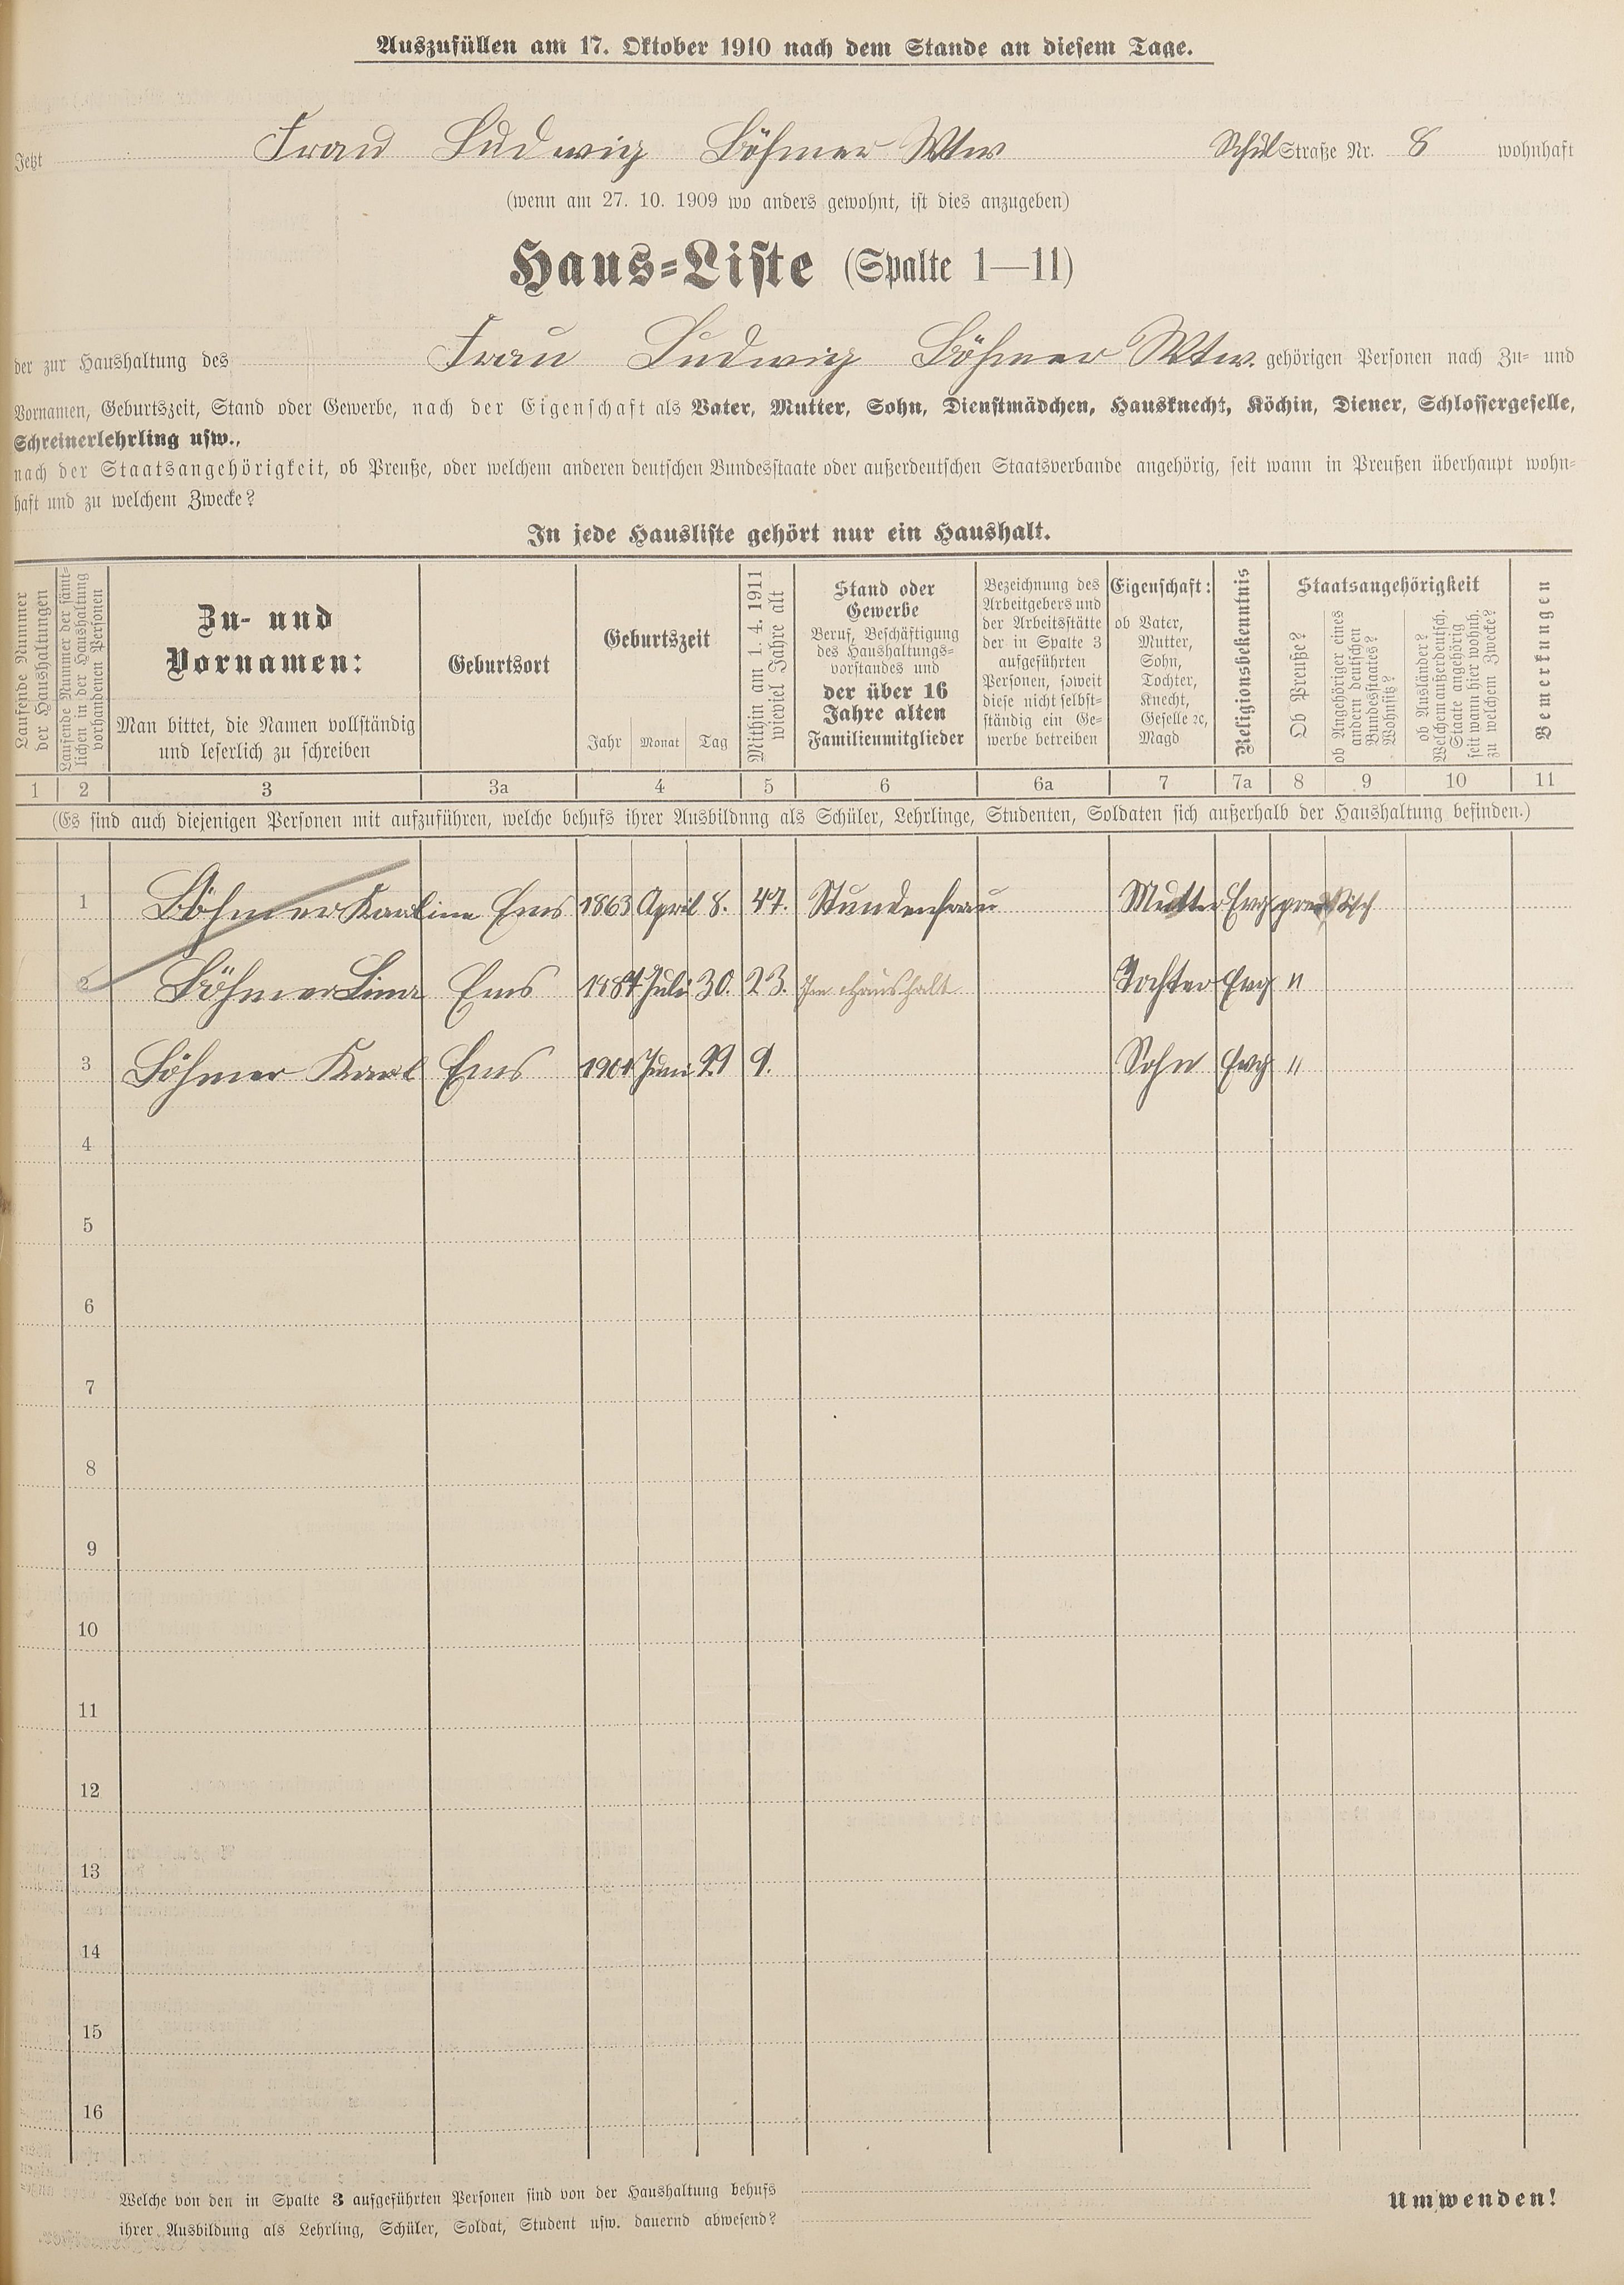 Auszufüllen am 17. Oktober 1910 nach dem Stande an diesem Tage.
Jetzt Frau Ludwig Böhmer Wtw Schul Straße Nr. 8 wohnhaft
(wenn am 27. 10. 1909 wo anders gewohnt, ist dies anzugeben)
Haus-Liste (Spalte 1—11)
der zur Haushaltung des Frau Ludwig Böhmer Wtw. gehörigen Personen nach Zu- und
Vornamen, Geburtszeit, Stand oder Gewerbe, nach der Eigenschaft als Vater, Mutter, Sohn, Dienstmädchen, Hausknecht, Köchin, Diener, Schlossergeselle,
Schreinerlehrling usw.,
nach der Staatsangehörigkeit, ob Preuße, oder welchem anderen deutschen Bundesstaate oder außerdeutschen Staatsverbande angehörig, seit wann in Preußen überhaupt wohn-
haft und zu welchem Zwecke?
In jede Hausliste gehört nur ein Haushalt.
Laufende Nummer
der Haushaltungen
Laufende Nummer der sämt-
lichen in der Haushaltung
vorhandenen Personen
Zu- und
Vornamen:
Man bittet, die Namen vollständig
und leserlich zu schreiben
Geburtsort
Geburtszeit
Jahr Monat Tag
Mithin am 1. 4. 1911
wieviel Jahre alt
Stand oder
Gewerbe
Beruf, Beschäftigung
des Haushaltungs-
vorstandes und
der über 16
Jahre alten
Familienmitglieder
Bezeichnung des
Arbeitgebers und
der Arbeitsstätte
der in Spalte 3
aufgeführten
Personen, soweit
diese nicht selbst-
ständig ein Ge-
werbe betreiben
Eigenschaft:
ob Vater,
Mutter,
Sohn,
Tochter,
Knecht,
Geselle ꝛc,
Magd
Religionsbekenntnis
Staatsangehörigkeit
Ob Preuße?
ob Angehöriger eines
andern deutschen
Bundesstaates?
Wohnsitz?
ob Ausländer?
Welchem außerdeutsch.
Staate angehörig
seit wann hier wohnh.
zu welchem Zwecke?
Bemerkungen
1 2 3 3a 4 5 6 6a 7 7a 8 9 10 11
(Es sind auch diejenigen Personen mit aufzuführen, welche behufs ihrer Ausbildung als Schüler, Lehrlinge, Studenten, Soldaten sich außerhalb der Haushaltung befinden.)
1 Böhmer Karoline Ems 1863 April 8. 47. Stundenfrau Mutter Evg preußisch
2 Böhmer Lina Ems 1887 Juli 30. 23. Im Haushalt Tochter Evg "
3 Böhmer Karl Ems 1901 Juni 29 9. Sohn Evg "
4
5
6
7
8
9
10
11
12
13
14
15
16
Welche von den in Spalte 3 aufgeführten Personen sind von der Haushaltung behufs
ihrer Ausbildung als Lehrling, Schüler, Soldat, Student usw. dauernd abwesend?
Umwenden!